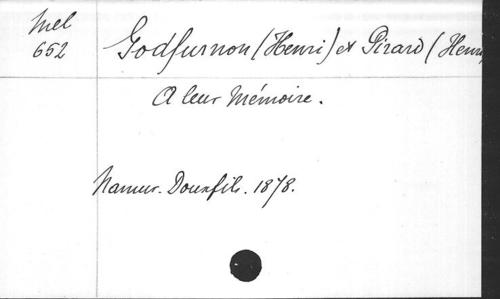 Mel
652
Godfurnon (Henri) et Pirard (Henri
A leur Mémoire.
Namur. Douxfils. 1878.